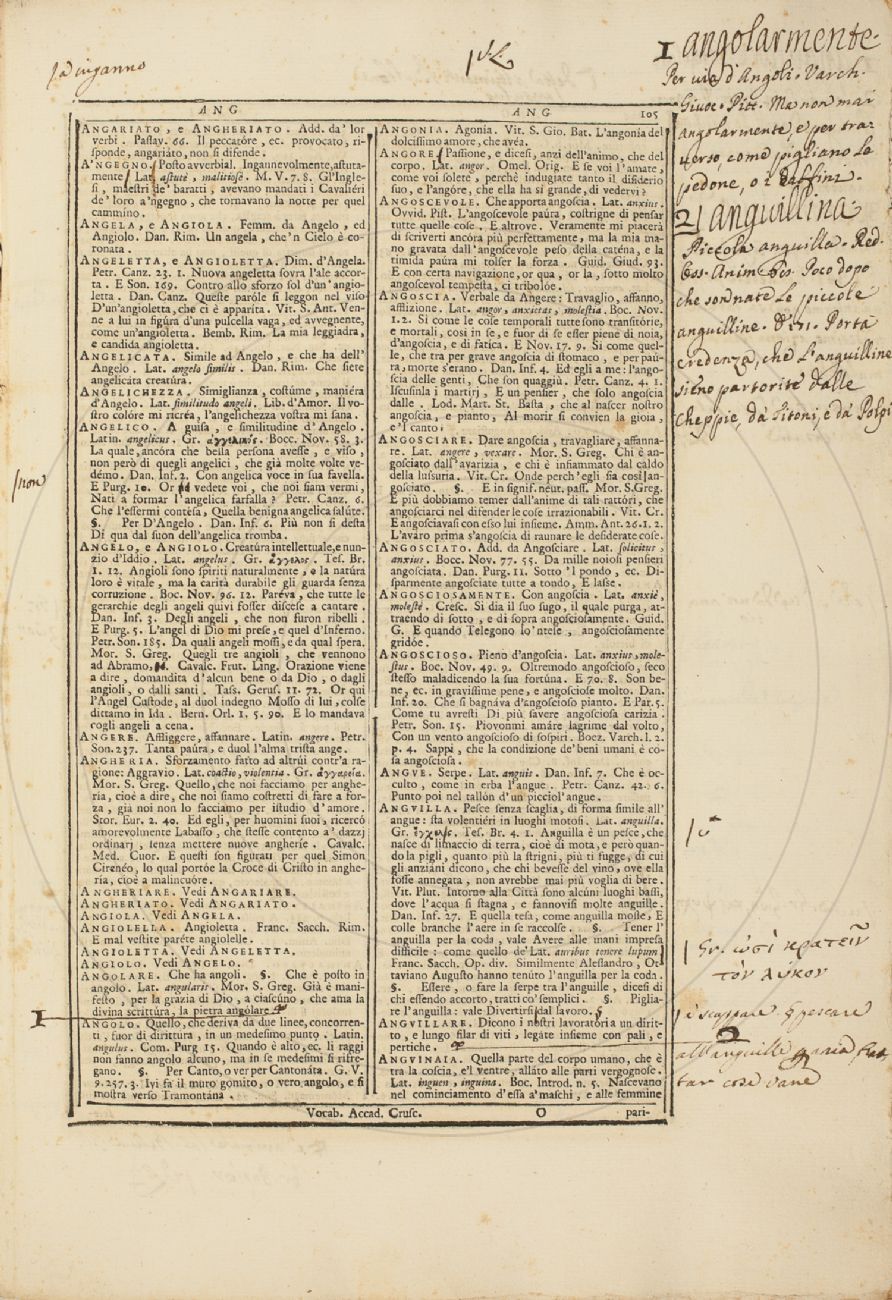 I angolarmente.
Per via d'Angoli. Varch.
Giuoc. Pitt. Ma non mai
angolarmente, e per tra-
verso, come pigliano le
pedone, o i Dalfini.
2 anguillina
Piccola anguilla. Red.
Oss. Anim. Poco dopo
che son nate le piccole
anguilline. Porta
credenza, che l'anguilline
sieno partorite dalle
cheppie, da Sitoni, e da Polpi
ad inganno
ANG
ANG
105
ANGARIATO, e ANGHERIATO. Add. da' lor
verbi. Passav. 66. Il peccatóre, ec. provocato, ri-
sponde, angariáto, non si difende.
A'NGEGNO. Posto avverbial. Ingannevolmente, astuta-
mente. Lat. astutè, malitiosè. M. V. 7. 8. Gl'Ingle-
si, maestri de' baratti, avevano mandati i Cavaliéri
de' loro a'ngegno, che tornavano la notte per quel
cammino.
ANGELA, e ANGIOLA. Femm. da Angelo, ed
Angiolo. Dan. Rim. Un angela, che'n Cielo è co-
ronata.
ANGELETTA, e ANGIOLETTA. Dim. d'Angela.
Petr. Canz. 23. 1. Nuova angeletta sovra l'ale accor-
ta. E Son. 169. Contro allo sforzo sol d'un' angio-
letta. Dan. Canz. Queste paróle si leggon nel viso
D'un'angioletta, che ci è apparita. Vit. S. Ant. Ven-
ne a lui in figura d'una pulcella vaga, ed avvegnente,
come un'angioletta. Bemb. Rim. La mia leggiadra,
e candida angioletta.
ANGELICATA. Simile ad Angelo, e che ha dell'
Angelo. Lat. angelo similis. Dan. Rim. Che siete
angelicáta creatúra.
ANGELICHEZZA. Simiglianza, costúme, maniéra
d'Angelo. Lat. similitudo angeli. Lib. d'Amor. Il vo-
stro colóre mi ricréa, l'angelichezza vostra mi sana.
ANGELICO. A guisa, e similitudine d'Angelo.
Latin. angelicus. Gr. ἀγγελικός. Bocc. Nov. 58. 3.
La quale, ancóra che bella persona avesse, e viso,
non però di quegli angelici, che già molte volte ve-
démo. Dan. Inf. 2. Con angelica voce in sua favella.
E Purg. 10. Or vedete voi, che noi siam vermi,
Nati a formar l'angelica farfalla? Petr. Canz. 6.
Che l'essermi contésa, Quella benigna angelica salúte.
§. Per D'Angelo. Dan. Inf. 6. Più non si desta
Di qua dal suon dell'angelica tromba.
ANGELO, e ANGIOLO. Creatúra intellettuale, e nun-
zio d'Iddio. Lat. angelus. Gr. ἄγγελος. Tes. Br.
1. 12. Angioli sono spiriti naturalmente, e la natúra
loro è vitale, ma la carità durabile gli guarda senza
corruzione. Boc. Nov. 96. 12. Paréva, che tutte le
gerarchie degli angeli quivi fosser discese a cantare.
Dan. Inf. 3. Degli angeli, che non furon ribelli.
E Purg. 5. L'angel di Dio mi prese, e quel d'Inferno.
Petr. Son. 185. Da quali angeli mossi, e da qual spera.
Mor. S. Greg. Quegli tre angioli, che vennono
ad Abramo, Cavalc. Frut. Ling. Orazione viene
a dire, domandita d'alcun bene o da Dio, o dagli
angioli, o dalli santi. Tass. Gerus. 11. 72. Or qui
l'Angel Custode, al duol indegno Mosso di lui, colse
dittamo in Ida. Bern. Orl. 1. 5. 90. E lo mandava
cogli angeli a cena.
ANGERE. Affliggere, affannare. Latin. angere. Petr.
Son. 237. Tanta paúra, e duol l'alma trista ange.
ANGHERIA. Sforzamento fatto ad altrúi contr'a ra-
gione: Aggravio. Lat. coactio, violentia. Gr. ἀγγαρεία.
Mor. S. Greg. Quello, che noi facciamo per anghe-
ria, cioè a dire, che noi siamo costretti di fare a for-
za, già noi non lo facciamo per istudio d'amore.
Stor. Eur. 2. 40. Ed egli, per huomini suoi, ricercò
amorevolmente Labasso, che stesse contento a' dazzj
ordinarj, senza mettere nuove angherie. Cavalc.
Med. Cuor. E questi son figurati per quel Simon
Cirenéo, lo qual portóe la Croce di Cristo in anghe-
ria, cioè a malincuóre.
ANGHERIARE. Vedi ANGARIARE.
ANGHERIATO. Vedi ANGARIATO.
ANGIOLA. Vedi ANGELA.
ANGIOLELLA. Angioletta. Franc. Sacch. Rim.
E mal vestite paréte angiolelle.
ANGIOLETTA. Vedi ANGELETTA.
ANGIOLO. Vedi ANGELO.
ANGOLARE. Che ha angoli. §. Che è posto in
angolo. Lat. angularis. Mor. S. Greg. Già è mani-
festo, per la grazia di Dio, a ciascúno, che ama la
divina scrittúra, la pietra angoláre.
I
ANGOLO. Quello, che deriva da due linee, concorren-
ti, fuor di dirittura, in un medesimo punto. Latin.
angulus. Com. Purg. 15. Quando è alto, ec. li raggi
non fanno angolo alcuno, ma in se medesimi si rifre-
gano. §. Per Canto, o ver per Cantonáta. G. V.
9. 257. 3. Ivi fa il muro gómito, o vero angolo, e si
mostra verso Tramontána.
non
ANGONIA. Agonía. Vit. S. Gio. Bat. L'angonia del
dolcissimo amore, che avéa.
ANGORE. Passione, e dicesi, anzi dell'animo, che del
corpo. Lat. angor. Omel. Orig. E se voi l'amate,
come voi solete, perchè indugiate tanto il disiderio
suo, e l'angóre, che ella ha si grande, di vedervi?
ANGOSCEVOLE. Che apporta angoscia. Lat. anxius.
Ovvid. Pist. L'angoscevole paúra, costrigne di pensar
tutte quelle cose. E altrove. Veramente mi piacerà
di scriverti ancóra più perfettamente, ma la mia ma-
no gravata dall'angoscevole peso della caténa, e la
timida paúra mi tolser la forza. Guid. Giud. 93.
E con certa navigazione, or qua, or la, sotto molto
angoscevol tempesta, ci tribolóe.
ANGOSCIA. Verbale da Angere: Travaglio, affanno,
afflizione. Lat. angor, anxietas, molestia. Boc. Nov.
1. 2. Si come le cose temporali tutte sono transitórie,
e mortali, così in se, e fuor di se esser piene di noia,
d'angoscia, e di fatica. E Nov. 17. 9. Si come quel-
le, che tra per grave angoscia di stomaco, e per paú-
ra, morte s'erano. Dan. Inf. 4. Ed egli a me: l'ango-
scia delle genti, Che son quaggiù. Petr. Canz. 4. 1.
Iscusinla i martirj, E un pensier, che solo angoscia
dalle. Lod. Mart. St. Basta, che al nascer nostro
angoscia, e pianto, Al morir si convien la gioia,
e'l canto.
ANGOSCIARE. Dare angoscia, travagliare, affanna-
re. Lat. angere, vexare. Mor. S. Greg. Chi è an-
gosciato dall'avarizia, e chi è infiammato dal caldo
della lussuria. Vit. Cr. Onde perch'egli sia così an-
gosciato. §. E in signif. neut. pass. Mor. S. Greg.
E più dobbiamo temer dall'anime di tali rattóri, che
angosciarci nel difender le cose irrazionabili. Vit. Cr.
E angosciavasi con esso lui insieme. Amm. Ant. 26. 1. 2.
L'aváro prima s'angoscia di raunare le desiderate cose.
ANGOSCIATO. Add. da Angosciare. Lat. solicitus,
anxius. Bocc. Nov. 77. 55. Da mille noiosi pensieri
angosciata. Dan. Purg. 11. Sotto 'l pondo, ec. Di-
sparmente angosciate tutte a tondo, E lasse.
ANGOSCIOSAMENTE. Con angoscia. Lat. anxiè,
molestè. Cresc. Si dia il suo sugo, il quale purga, at-
traendo di sotto, e di sopra angosciosamente. Guid.
G. E quando Telegono lo 'ntese, angosciosamente
gridóe.
ANGOSCIOSO. Pieno d'angoscia. Lat. anxius, mole-
stus. Boc. Nov. 49. 9. Oltremodo angoscioso, seco
stesso maladicendo la sua fortúna. E 70. 8. Son be-
ne, ec. in gravissime pene, e angosciose molto. Dan.
Inf. 20. Che si bagnáva d'angoscioso pianto. E Par. 5.
Come tu avresti Di più savere angosciosa carizia.
Petr. Son. 15. Piovonmi amáre lagrime dal volto,
Con un vento angoscioso di sospiri. Boez. Varch. l. 2.
p. 4. Sappi, che la condizione de'beni umani è co-
sa angosciosa.
ANGVE. Serpe. Lat. anguis. Dan. Inf. 7. Che è oc-
culto, come in erba l'angue. Petr. Canz. 42. 6.
Punto poi nel tallón d'un picciol'angue.
ANGVILLA. Pesce senza scaglia, di forma simile all'
angue: sta volentiéri in luoghi motosi. Lat. anguilla.
Gr. ἔγχελυς. Tes. Br. 4. 1. Anguilla è un pesce, che
nasce di limaccio di terra, cioè di mota, e però quan-
do la pigli, quanto più la strigni, più ti fugge, di cui
gli anziani dicono, che chi bevesse del vino, ove ella
fosse annegata, non avrebbe mai più voglia di bere.
Vit. Plut. Intorno alla Città sono alcúni luoghi bassi,
dove l'acqua si stagna, e fannovisi molte anguille.
Dan. Inf. 27. E quella tesa, come anguilla mosse, E
colle branche l'aere in se raccolse. §. Tener l'
anguilla per la coda, vale Avere alle mani impresa
difficile: come quello de' Lat. auribus tenere lupum.
Franc. Sacch. Op. div. Similmente Alessandro, Ot-
taviano Augusto hanno tenúto l'anguilla per la coda.
§. Essere, o fare la serpe tra l'anguille, dicesi di
chi essendo accorto, tratti co'semplici. §. Piglia-
re l'anguilla: vale Divertirsi dal lavoro.
ANGVILLARE. Dicono i nostri lavoratóri a un dirit-
to, e lungo filar di viti, legate insieme con pali, e
pertiche.
ANGVINAIA. Quella parte del corpo umano, che è
tra la coscia, e'l ventre, alláto alle parti vergognose.
Lat. inguen, inguina. Boc. Introd. n. 5. Nascevano
nel cominciamento d'essa a' maschi, e alle femmine
Gr. ὠσὶ κρατεῖν
τὸν λύκον
è scappare
all'anguille
tar cose vane
Vocab. Accad. Crusc.
O
pari-